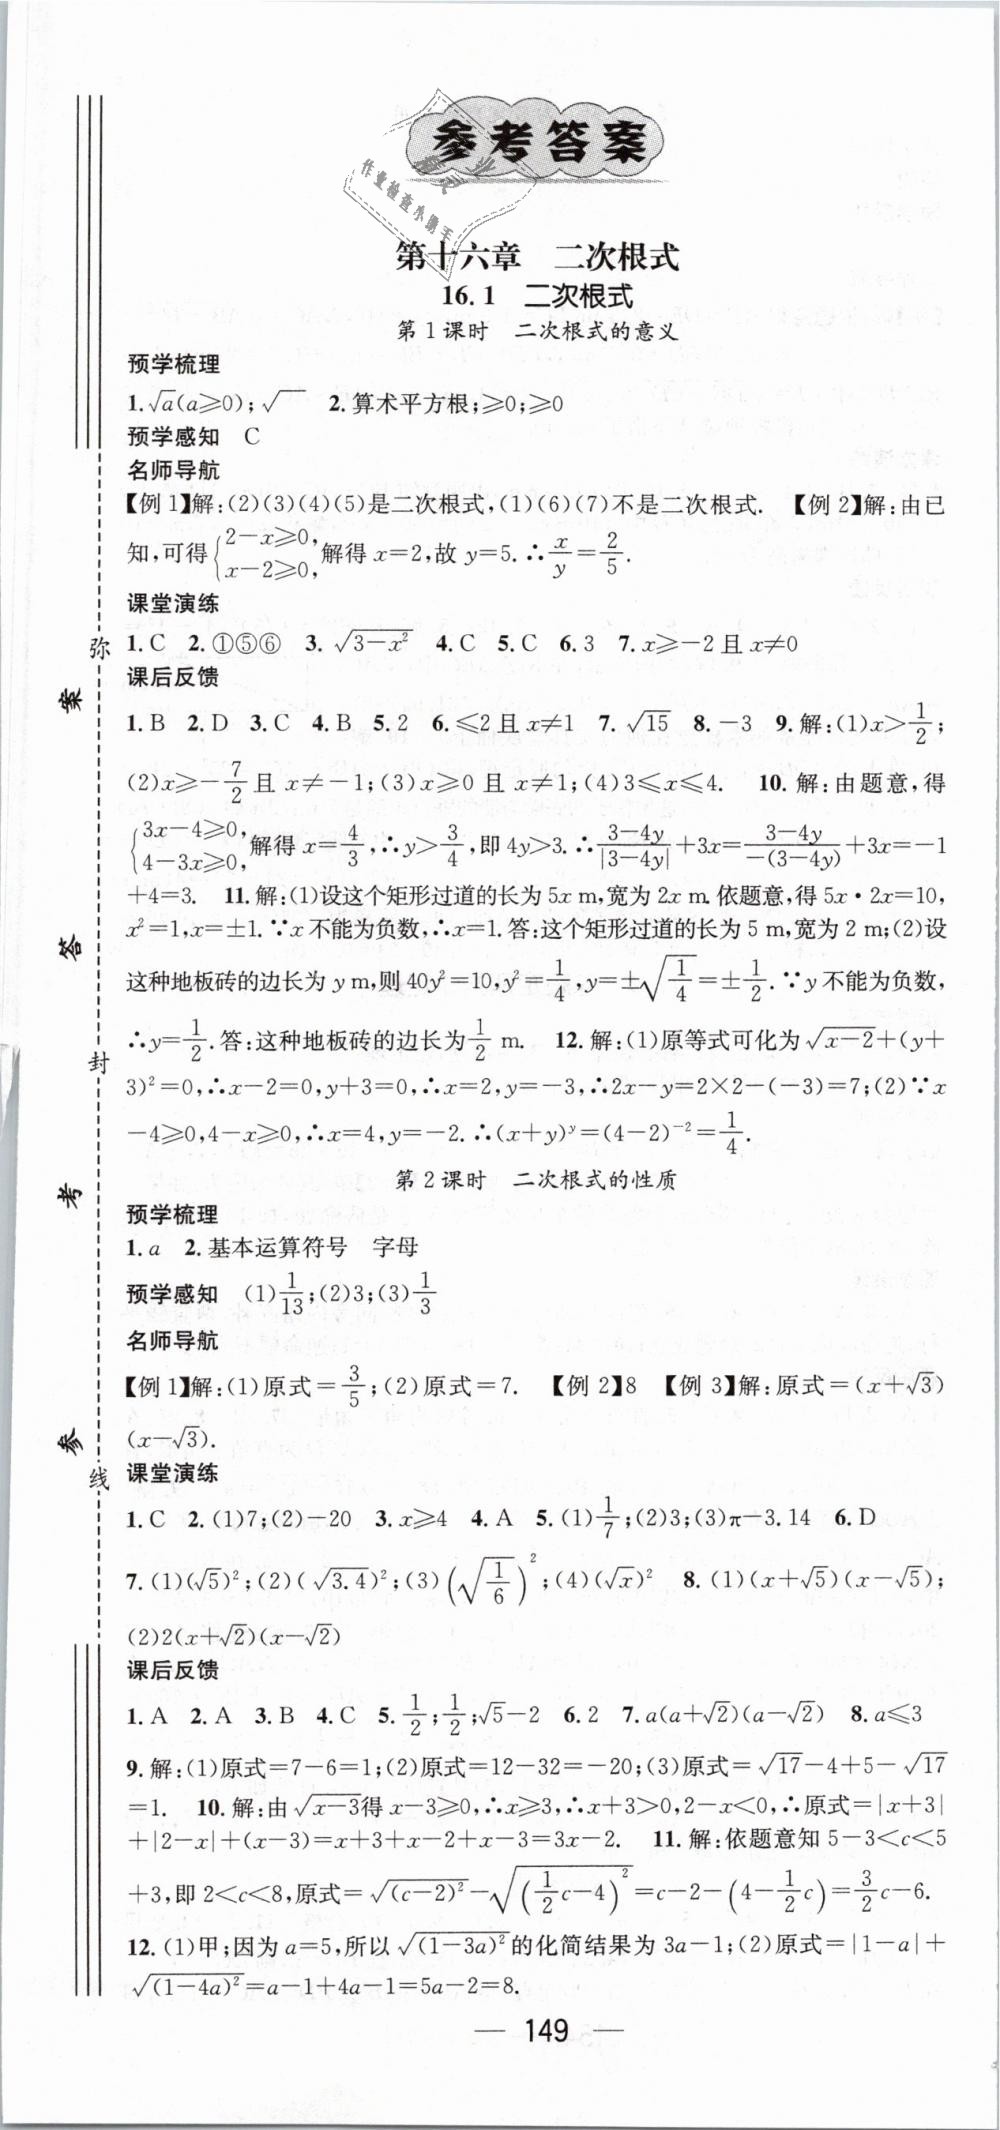 参考答案
精灵
业
作业检查小助手
第十六章 二次根式
16.1 二次根式
第1课时 二次根式的意义
预学梳理
1.√a(a≥0);√  2.算术平方根;≥0;≥0
预学感知 C
名师导航
【例1】解:(2)(3)(4)(5)是二次根式,(1)(6)(7)不是二次根式. 【例2】解:由已
知,可得{2-x≥0, x-2≥0, 解得 x=2,故 y=5.∴x/y=2/5.
课堂演练
1.C 2.①⑤⑥ 3.√(3-x²) 4.C 5.C 6.3 7.x≥-2且x≠0
课后反馈
1.B 2.D 3.C 4.B 5.2 6.≤2且x≠1 7.√15 8.-3 9.解:(1)x>1/2;
(2)x≥-7/2且x≠-1;(3)x≥0且x≠1;(4)3≤x≤4. 10.解:由题意,得
{3x-4≥0, 4-3x≥0, 解得x=4/3,∴y>3/4,即4y>3.∴(3-4y)/|3-4y|+3x=(3-4y)/-(3-4y)+3x=-1
+4=3. 11.解:(1)设这个矩形过道的长为5x m,宽为2x m.依题意,得5x·2x=10,
x²=1,x=±1.∵x不能为负数,∴x=1.答:这个矩形过道的长为5 m,宽为2 m;(2)设
这种地板砖的边长为y m,则40y²=10,y²=1/4,y=±√(1/4)=±1/2.∵y不能为负数,
∴y=1/2.答:这种地板砖的边长为1/2 m. 12.解:(1)原等式可化为√(x-2)+(y+
3)²=0,∴x-2=0,y+3=0,∴x=2,y=-3,∴2x-y=2×2-(-3)=7;(2)∵x
-4≥0,4-x≥0,∴x=4,y=-2.∴(x+y)ʸ=(4-2)⁻²=1/4.
第2课时 二次根式的性质
预学梳理
1.a 2.基本运算符号 字母
预学感知 (1)1/13;(2)3;(3)1/3
名师导航
【例1】解:(1)原式=3/5;(2)原式=7. 【例2】8 【例3】解:原式=(x+√3)
(x-√3).
课堂演练
1.C 2.(1)7;(2)-20 3.x≥4 4.A 5.(1)1/7;(2)3;(3)π-3.14 6.D
7.(1)(√5)²;(2)(√3.4)²;(3)(√(1/6))²;(4)(√x)² 8.(1)(x+√5)(x-√5);
(2)2(x+√2)(x-√2)
课后反馈
1.A 2.A 3.B 4.C 5.1/2;1/2;√5-2 6.2 7.a(a+√2)(a-√2) 8.a≤3
9.解:(1)原式=7-6=1;(2)原式=12-32=-20;(3)原式=√17-4+5-√17
=1. 10.解:由√(x-3)得x-3≥0,∴x≥3,∴x+3>0,2-x<0,∴原式=|x+3|
+|2-x|+(x-3)=x+3+x-2+x-3=3x-2. 11.解:依题意知5-3<c<5
+3,即2<c<8,原式=√((c-2)²)-√((1/2c-4)²)=c-2-(4-1/2c)=3/2c-6.
12.(1)甲;因为a=5,所以√((1-3a)²)的化简结果为3a-1;(2)原式=|1-a|+
√((1-4a)²)=a-1+4a-1=5a-2=8.
— 149 —
弥
封
线
案
答
考
参